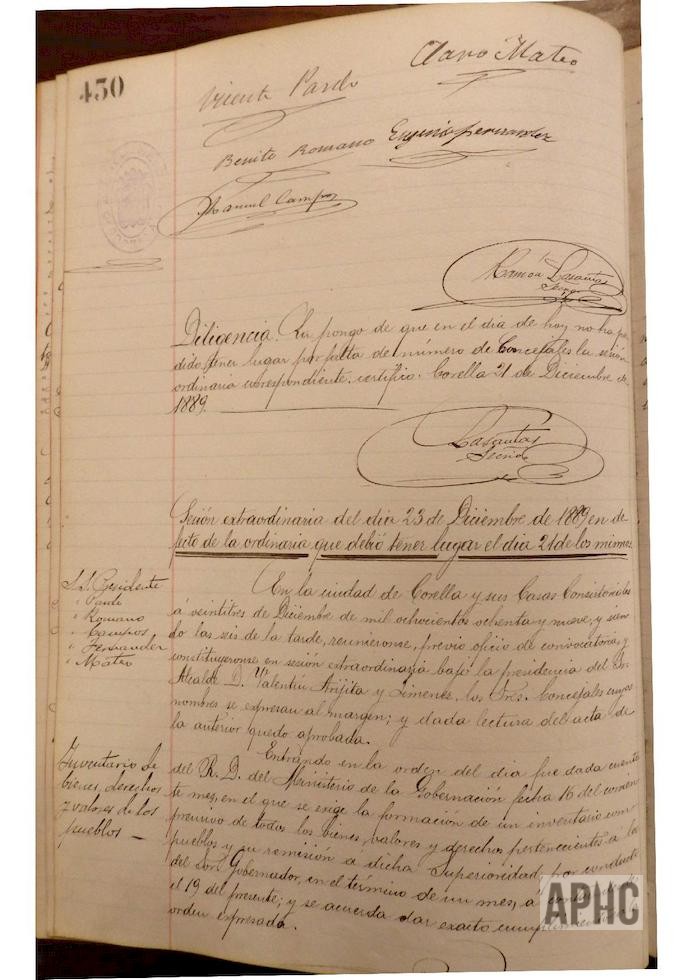 450
Claro Mateo
Vicente Pardo
Benito Romano Eugenio Fernandez
Manuel Campos
Ramón Lasantas
Secrio
Diligencia. La pongo de que en el dia de hoy no ha po
dido tener lugar por falta de número de Concejales la sesión
ordinaria correspondiente, certifico. Corella 21 de Diciembre de
1889.
Lasantas
Secrio
Sesión extraordinaria del dia 23 de Diciembre de 1889 en de
fecto de la ordinaria que debió tener lugar el dia 21 de los mismos.
S.S. Presidente
" Pardo
" Romano
" Campos
" Fernandez
" Mateo
En la ciudad de Corella y sus Casas Consistoriales
á veintitres de Diciembre de mil ochocientos ochenta y nueve, y sien
do las seis de la tarde, reunieronse, previo oficio de convocatoria, y
constituyeronse en sesión extraordinaria bajo la presidencia del Sor
Alcalde D. Valentin Arijita y Jimenez, los Sres. Concejales cuyos
nombres se expresan al margen; y dada lectura del acta de
la anterior quedo aprobada.
Inventario de
bienes, derechos
y valores de los
pueblos
Entrando en la orden del dia fue dada cuenta
del R. D. del Ministerio de la Gobernación fecha 16 del corrien
te mes, en el que se exige la formación de un inventario com
prensivo de todos los bienes, valores y derechos pertenecientes a los
pueblos y su remisión a dicha Superioridad, por conducto
del Sor Gobernador, en el término de un mes, á contar desde
el 19 del presente; y se acuerda dar exacto cumplimiento a la
orden expresada.
APHC